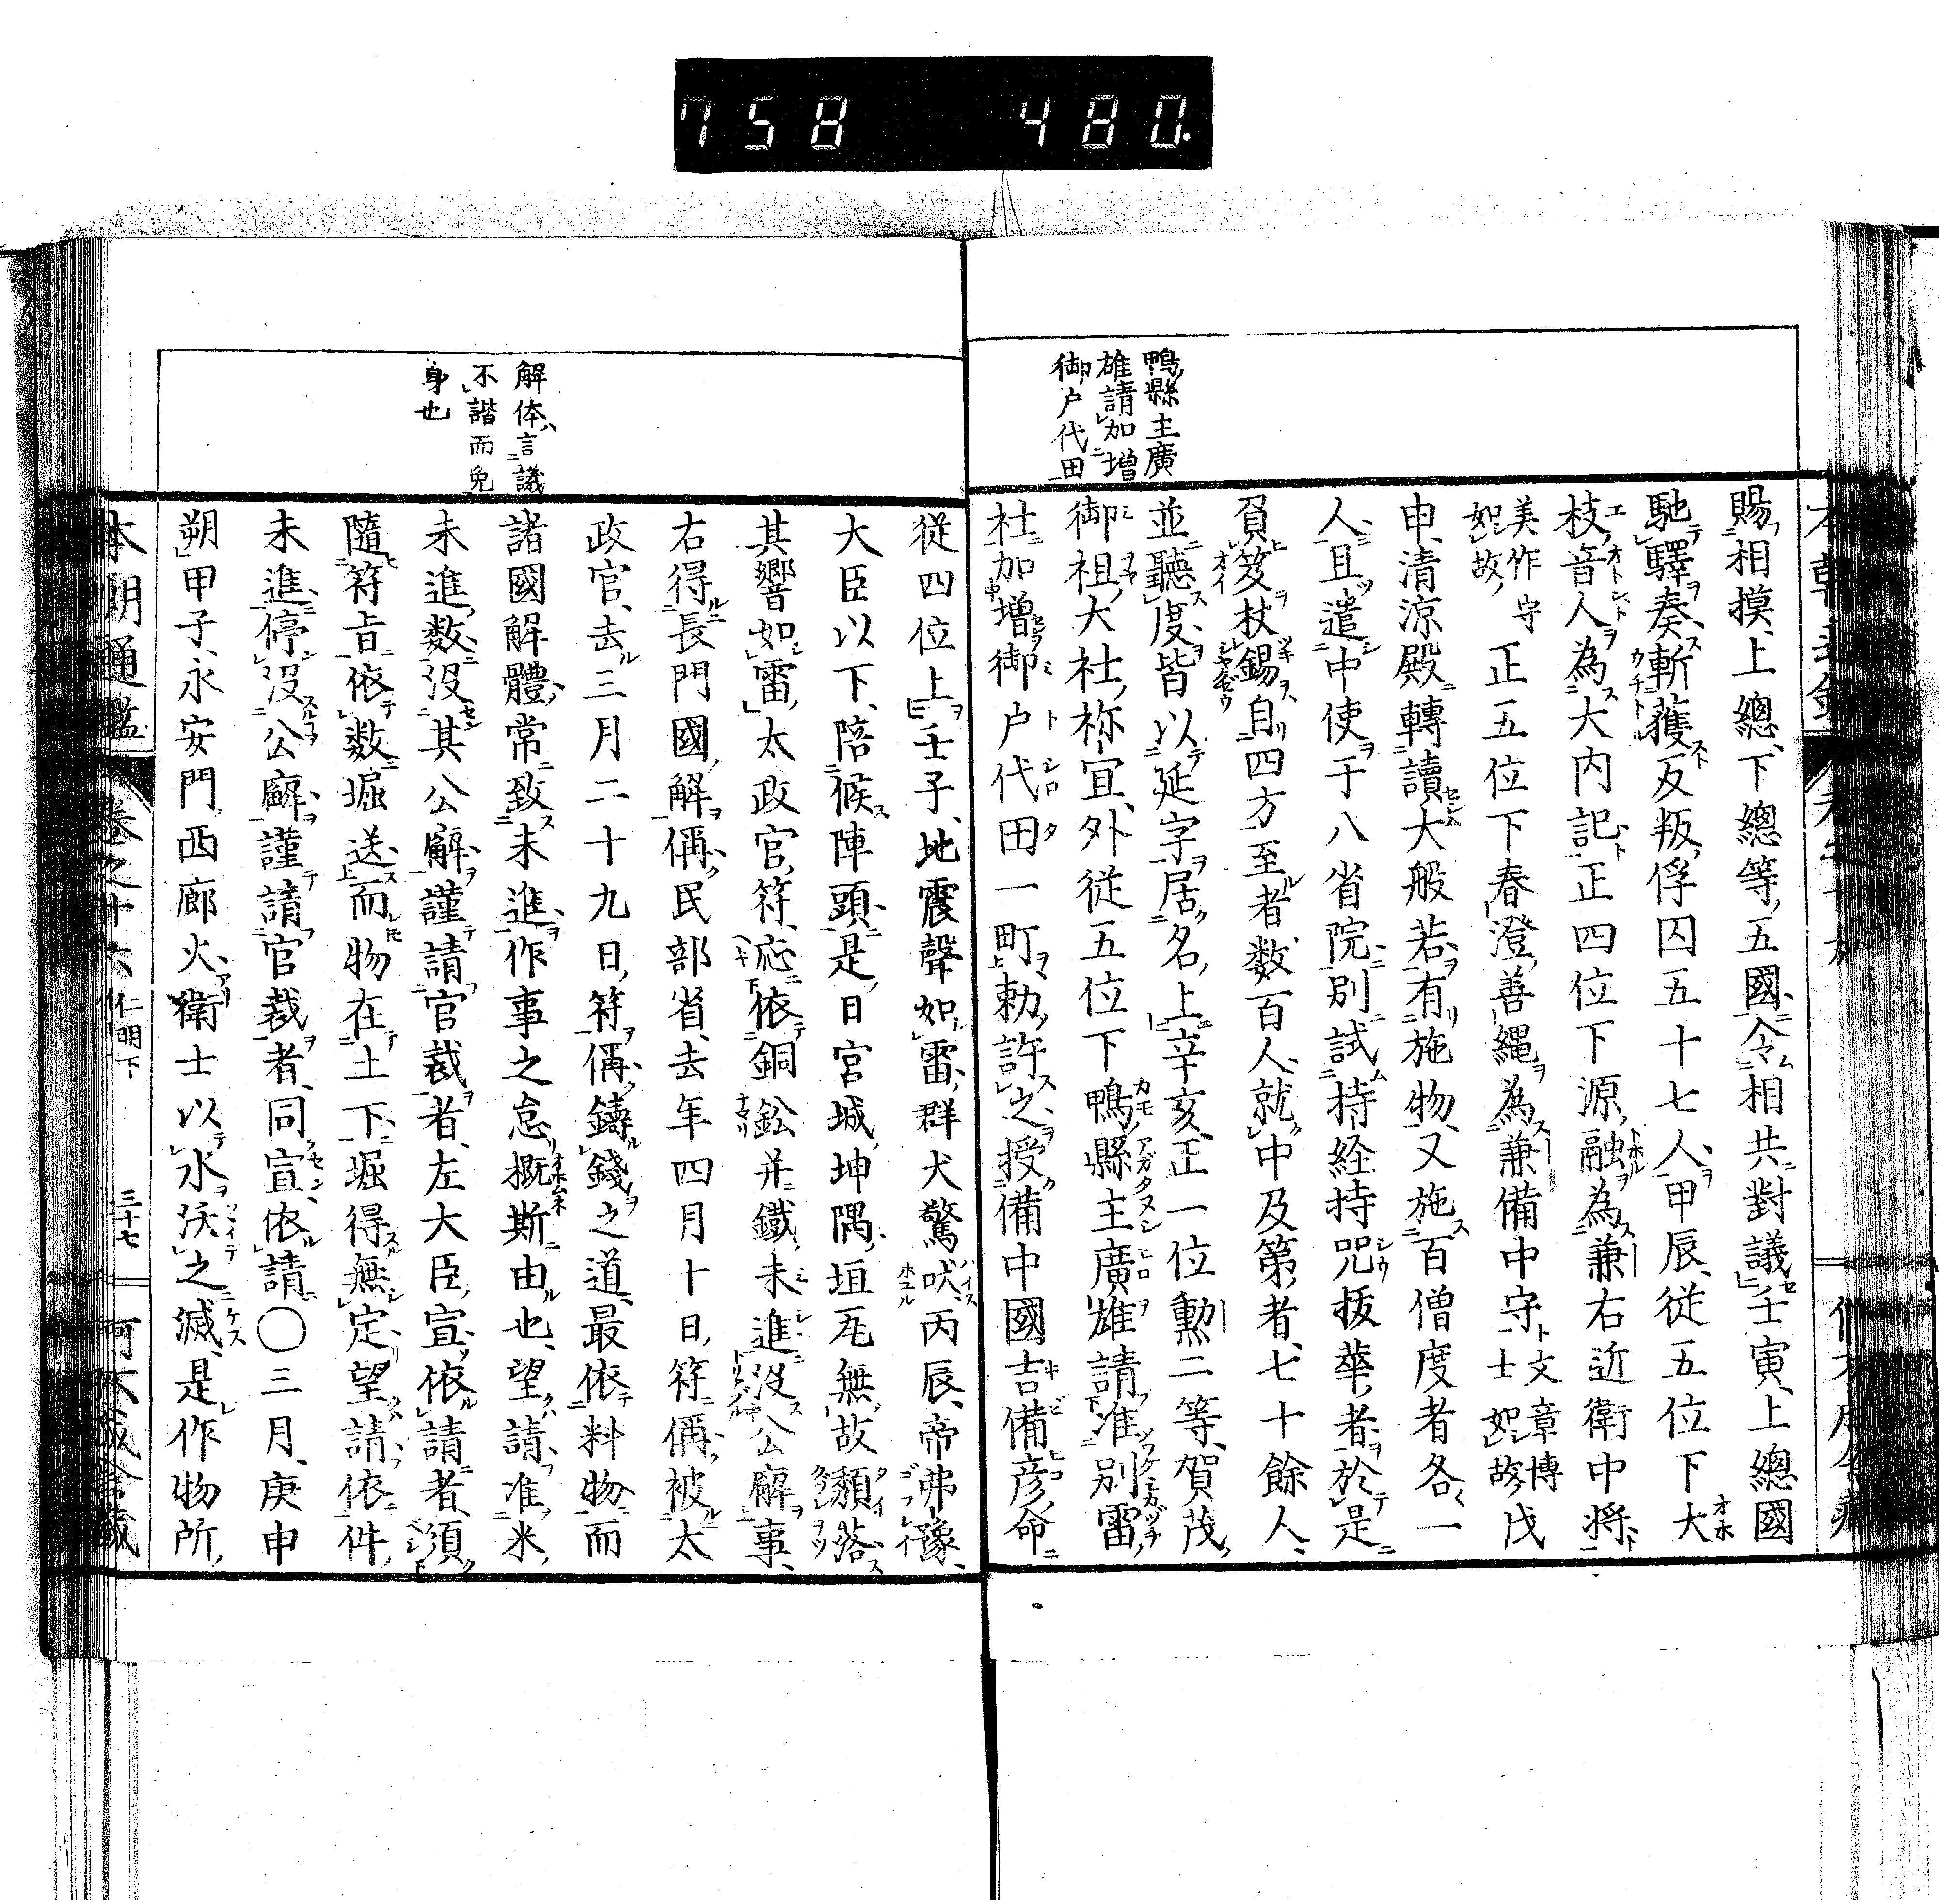 758 480.
鴨縣主廣
雄請加増
御戸代田
賜相摸、上總、下總等、五國、令相共對議、壬寅、上總國
馳驛奏、斬獲反叛、俘囚五十七人、甲辰、従五位下大
枝、音人為大内記、正四位下源、融為兼右近衛中将、
美作守如故、正五位下春澄、善縄為兼備中守、文章博士如故、戊
申、清涼殿轉讀大般若、有施物、又施百僧度者各一
人、且遣中使于八省院、別試持経持咒抜華者、於是
負笈杖錫、自四方至者数百人、就中及第者、七十餘人、
並聽度、皆以延字居名上、辛亥、正一位勲二等、賀茂、
御祖、大社、祢宜、外従五位下鴨、縣主廣雄請、准別雷、
社加増御戸代田一町、勅許之、授備中國吉備彦命
従四位上、壬子、地震聲如雷、群犬驚吠、丙辰、帝弗豫、
大臣以下、陪候陣頭、是日宮城、坤隅、垣瓦無故頽落
其響如雷、太政官、符、応依銅鈆并鐵、未進没公廨事、
右得長門國、解偁、民部省、去年四月十日、符偁、被太
政官、去三月二十九日、符偁、鑄錢之道、最依料物、而
諸國解體、常致未進、作事之怠、概斯由也、望請、准米、
未進、数没其公廨、謹請官裁者、左大臣、宣、依請者、須
隨符旨依数堀送、而物在土下、堀得無定、望請、依件、
未進、停没公廨、謹請官裁者、同宣、依請〇三月、庚申
朔、甲子、永安門、西廊火、衛士以水沃之滅、是作物所、
解体、言議
不諧而免
身也
本朝通鑑 卷之十六 仁明下 三十七